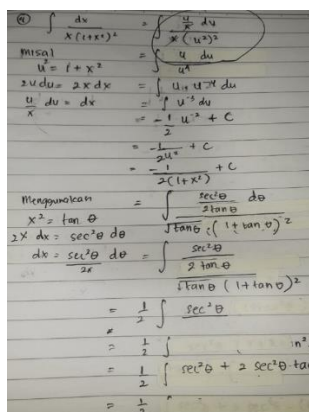 ④ ∫ dx / x(1+x²)² = ∫ u/x du / x(u²)²
misal = ∫ u du / u⁴
u² = 1 + x²
2u du = 2x dx = ∫ u · u⁻⁴ du
u/x du = dx = ∫ u⁻³ du
= -1/2 u⁻² + C
= -1/2u² + C
= -1/2(1+x²) + C
Menggunakan = ∫ sec²θ/2tanθ dθ / √tanθ (1+tanθ)²
x² = tan θ
2x dx = sec²θ dθ
dx = sec²θ/2x dθ = ∫ sec²θ / 2 tanθ / √tanθ (1+tanθ)²
= 1/2 ∫ sec²θ
= 1/2 ∫
= 1/2 ∫ sec²θ + 2 sec²θ · ta
= 1/2